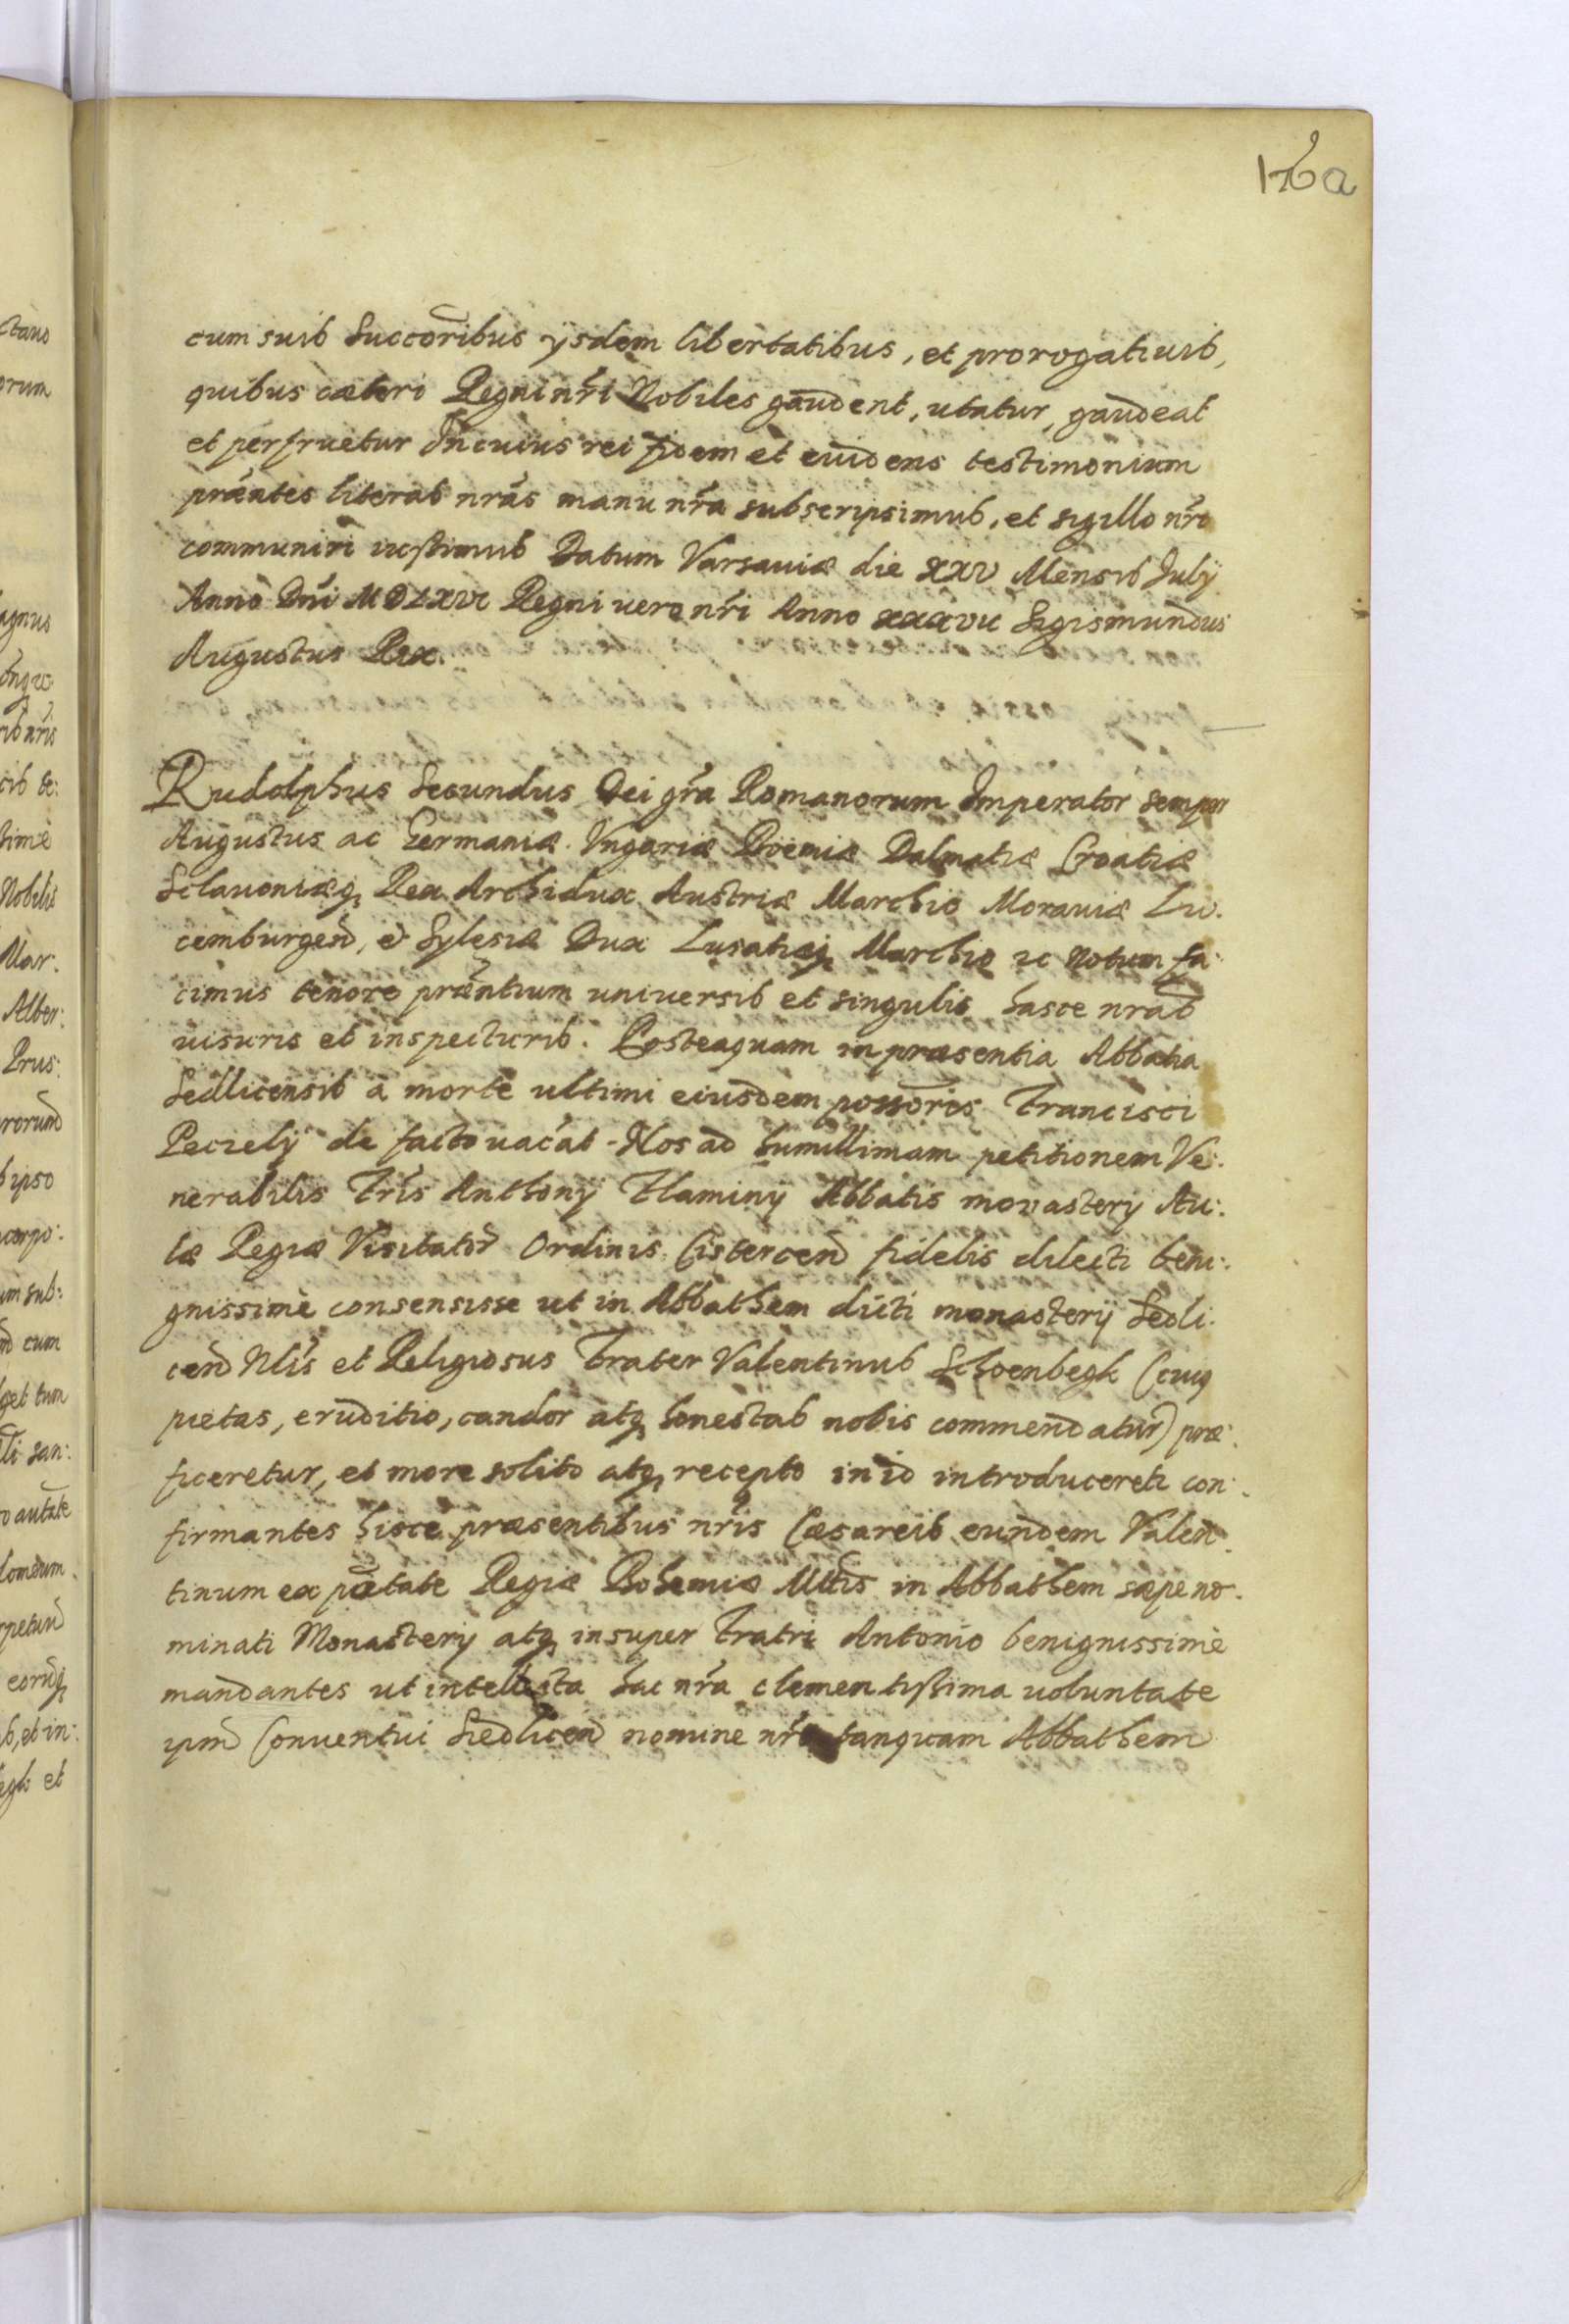 176a
cum suis Succoribus ÿsdem libertatibus, et prorogatiuis,
quibus cæteri Regni nri Nobiles gaudent, utatur, gaudeat
et perfruetur In cuius rei fidem et euidens testimonium
præntes literas nras manu nra subscripsimus, et sigillo nro
communiri iussimus Datum Varsauiæ die XXV Mensis Julÿ
Anno Dni MDLXVI Regni vero nri Anno xxxvii Sigismundus
Augustus Rex.
Rudolphus Secundus Dei gra Romanorum Imperator semper
Augustus ac Germaniæ. Vngariæ Boemiæ Dalmatiæ Croatiæ
Sclauoniæq Rex Archidux Austriæ Marchio Morauiæ Lu.
cemburgen, et Sylesiæ Dux Lusatiæq Marchio ec Notum fa:
cimus tenore præntium universis et singulis hasce nras
uisuris et inspecturis. Posteaquam in præsentia Abbatia
Sedlicensis a morte ultimi eiusdem possoris Francisci
Pecielÿ de facto uacat. Nos ad humillimam petitionem Ve:
nerabilis Fris Anthonÿ Flaminÿ Abbatis monasterÿ Au:
læ Regiæ Visitator Ordinis Cistercen fidelis dilecti beni:
gnissime consensisse ut in Abbathem dicti monasterÿ Sedli.
cen Nlis et Religiosus Frater Valentinus Schoenbegk (cuiq
pietas, eruditio, candor atq honestas nobis commendatur) præ:
ficeretur, et more solito atq recepto in id introducereti con:
firmantes hisce præsentibus nris Cæsareis eundem Valen.
tinum ex ptate Regiæ Bohemiæ Mttis in Abbathem sæpe no.
minati Monasterÿ atq insuper Fratri Antonio benignissime
mandantes ut intellecta hac nra clementissima uoluntate
ipm Conventui Sedlicen nomine nro tanquam Abbathem